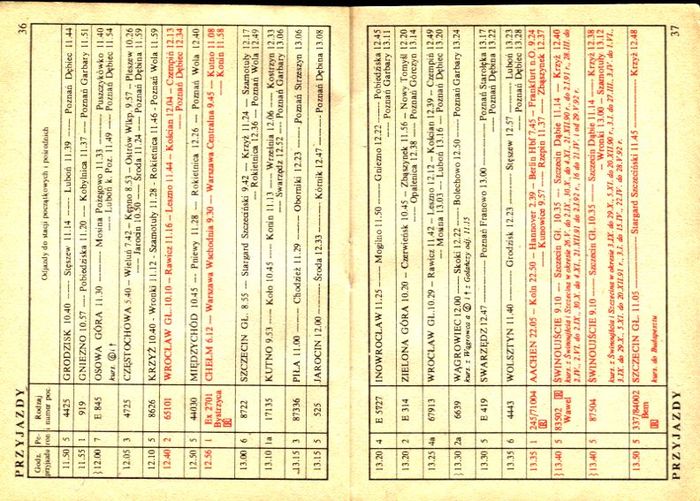 36
PRZYJAZDY
Godz. przyjazdu Pe- ron Rodzaj i numer poc. Odjazdy do stacji początkowych i pośrednich
11.50 5 4425 GRODZISK 10.40 — Sięszew 11.14 — Luboń 11.39 — Poznań Dębiec 11.44
11.55 1 919 GNIEZNO 10.57 — Pobiedziska 11.20 — Kobylnica 11.37 — Poznań Garbary 11.51
12.00 7 E 845 OSOWA GÓRA 11.30 — Mosina Pożegowo 11.33 — Puszczykówko 11.40
— Luboń k. Poz. 11.49 — Poznań Dębiec 11.54
12.05 3 4725 CZĘSTOCHOWA 5.40 – Wieluń 7.42 – Kępno 8.53 – Ostrów Wlkp. 9.57 – Pleszew 10.26
— Jarocin 10.50 — Środa 11.24 — Poznań Dębina 11.59
12.10 5 8626 KRZYŻ 10.40 - Wronki 11.12 - Szamotuły 11.28 - Rokietnica 11.46 - Poznań Wola 11.59
12.40 2 65101 WROCŁAW GŁ. 10.10 – Rawicz 11.16 – Leszno 11.44 – Kościan 12.04 – Czempiń 12.13
Poznań Dębiec 12.34
12.50 5 44030 MIĘDZYCHÓD 10.45 — Pniewy 11.28 — Rokietnica 12.26 — Poznań Wola 12.40
12.56 1 Ex 2701 Bystrzyca R CHEŁM 6.12 — Warszawa Wschodnia 9.30 — Warszawa Centralna 9.45 — Kutno 11.08
— Konin 11.58
13.00 6 8722 SZCZECIN GŁ. 8.55 — Stargard Szczeciński 9.42 — Krzyż 11.24 — Szamotuły 12.17
— Rokietnica 12.36 — Poznań Wola 12.49
13.10 1a 17135 KUTNO 9.53 — Koło 10.45 — Konin 11.13 — Września 12.06 — Kostrzyn 12.33
— Swarzędz 12.52 — Poznań Garbary 13.06
13.15 3 87336 PIŁA 11.00 — Chodzież 11.29 — Oborniki 12.23 — Poznań Strzeszyn 13.06
13.15 5 525 JAROCIN 12.00 — Środa 12.33 — Kórnik 12.47 — Poznań Dębina 13.08
37
13.20 4 E 5727 INOWROCŁAW 11.25 — Mogilno 11.50 — Gniezno 12.22 — Pobiedziska 12.45
Poznań Garbary 13.11
13.20 2 E 314 ZIELONA GÓRA 10.20 – Czerwieńsk 10.45 – Zbąszynek 11.56 – Nowy Tomyśl 12.20
— Opalenica 12.38 — Poznań Górczyn 13.14
13.20 4a 67913 WROCŁAW GŁ. 10.29 – Rawicz 11.42 – Leszno 12.12 – Kościan 12.39 – Czempiń 12.49
— Mosina 13.03 — Luboń 13.16 — Poznań Dębiec 13.20
13.30 2a 6659 WĄGROWIEC 12.00 — Skoki 12.22 — Bolechowo 12.50 — Poznań Garbary 13.24
13.30 5 E 419 SWARZĘDZ 12.47 — Poznań Franowo 13.00 — Poznań Starołęka 13.17
Poznań Dębina 13.22
13.35 6 4443 WOLSZTYN 11.40 — Grodzisk 12.23 — Sięszew 12.57 — Luboń 13.23
Poznań Dębiec 13.28
13.35 1 245/71004 R AACHEN 22.05 – Köln 22.50 – Hannover 2.39 – Berlin Hbf 7.45 – Frankfurt n.O. 9.24
— Kunowice 9.57 — Rzepin 11.37 — Zbąszynek 12.37
13.40 5 83502 R Wawel ŚWINOUJŚCIE 9.10 — Szczecin Gł. 10.35 — Szczecin Dąbie 11.14 — Krzyż 12.40
13.40 5 87504 ŚWINOUJŚCIE 9.10 — Szczecin Gł. 10.35 — Szczecin Dąbie 11.14 — Krzyż 12.38
— Wronki 13.00 — Szamotuły 13.12
13.50 5 337/84002 Bem R SZCZECIN GŁ. 11.05 — Stargard Szczeciński 11.45 — Krzyż 12.48
kurs. do Budapesztu
PRZYJAZDY